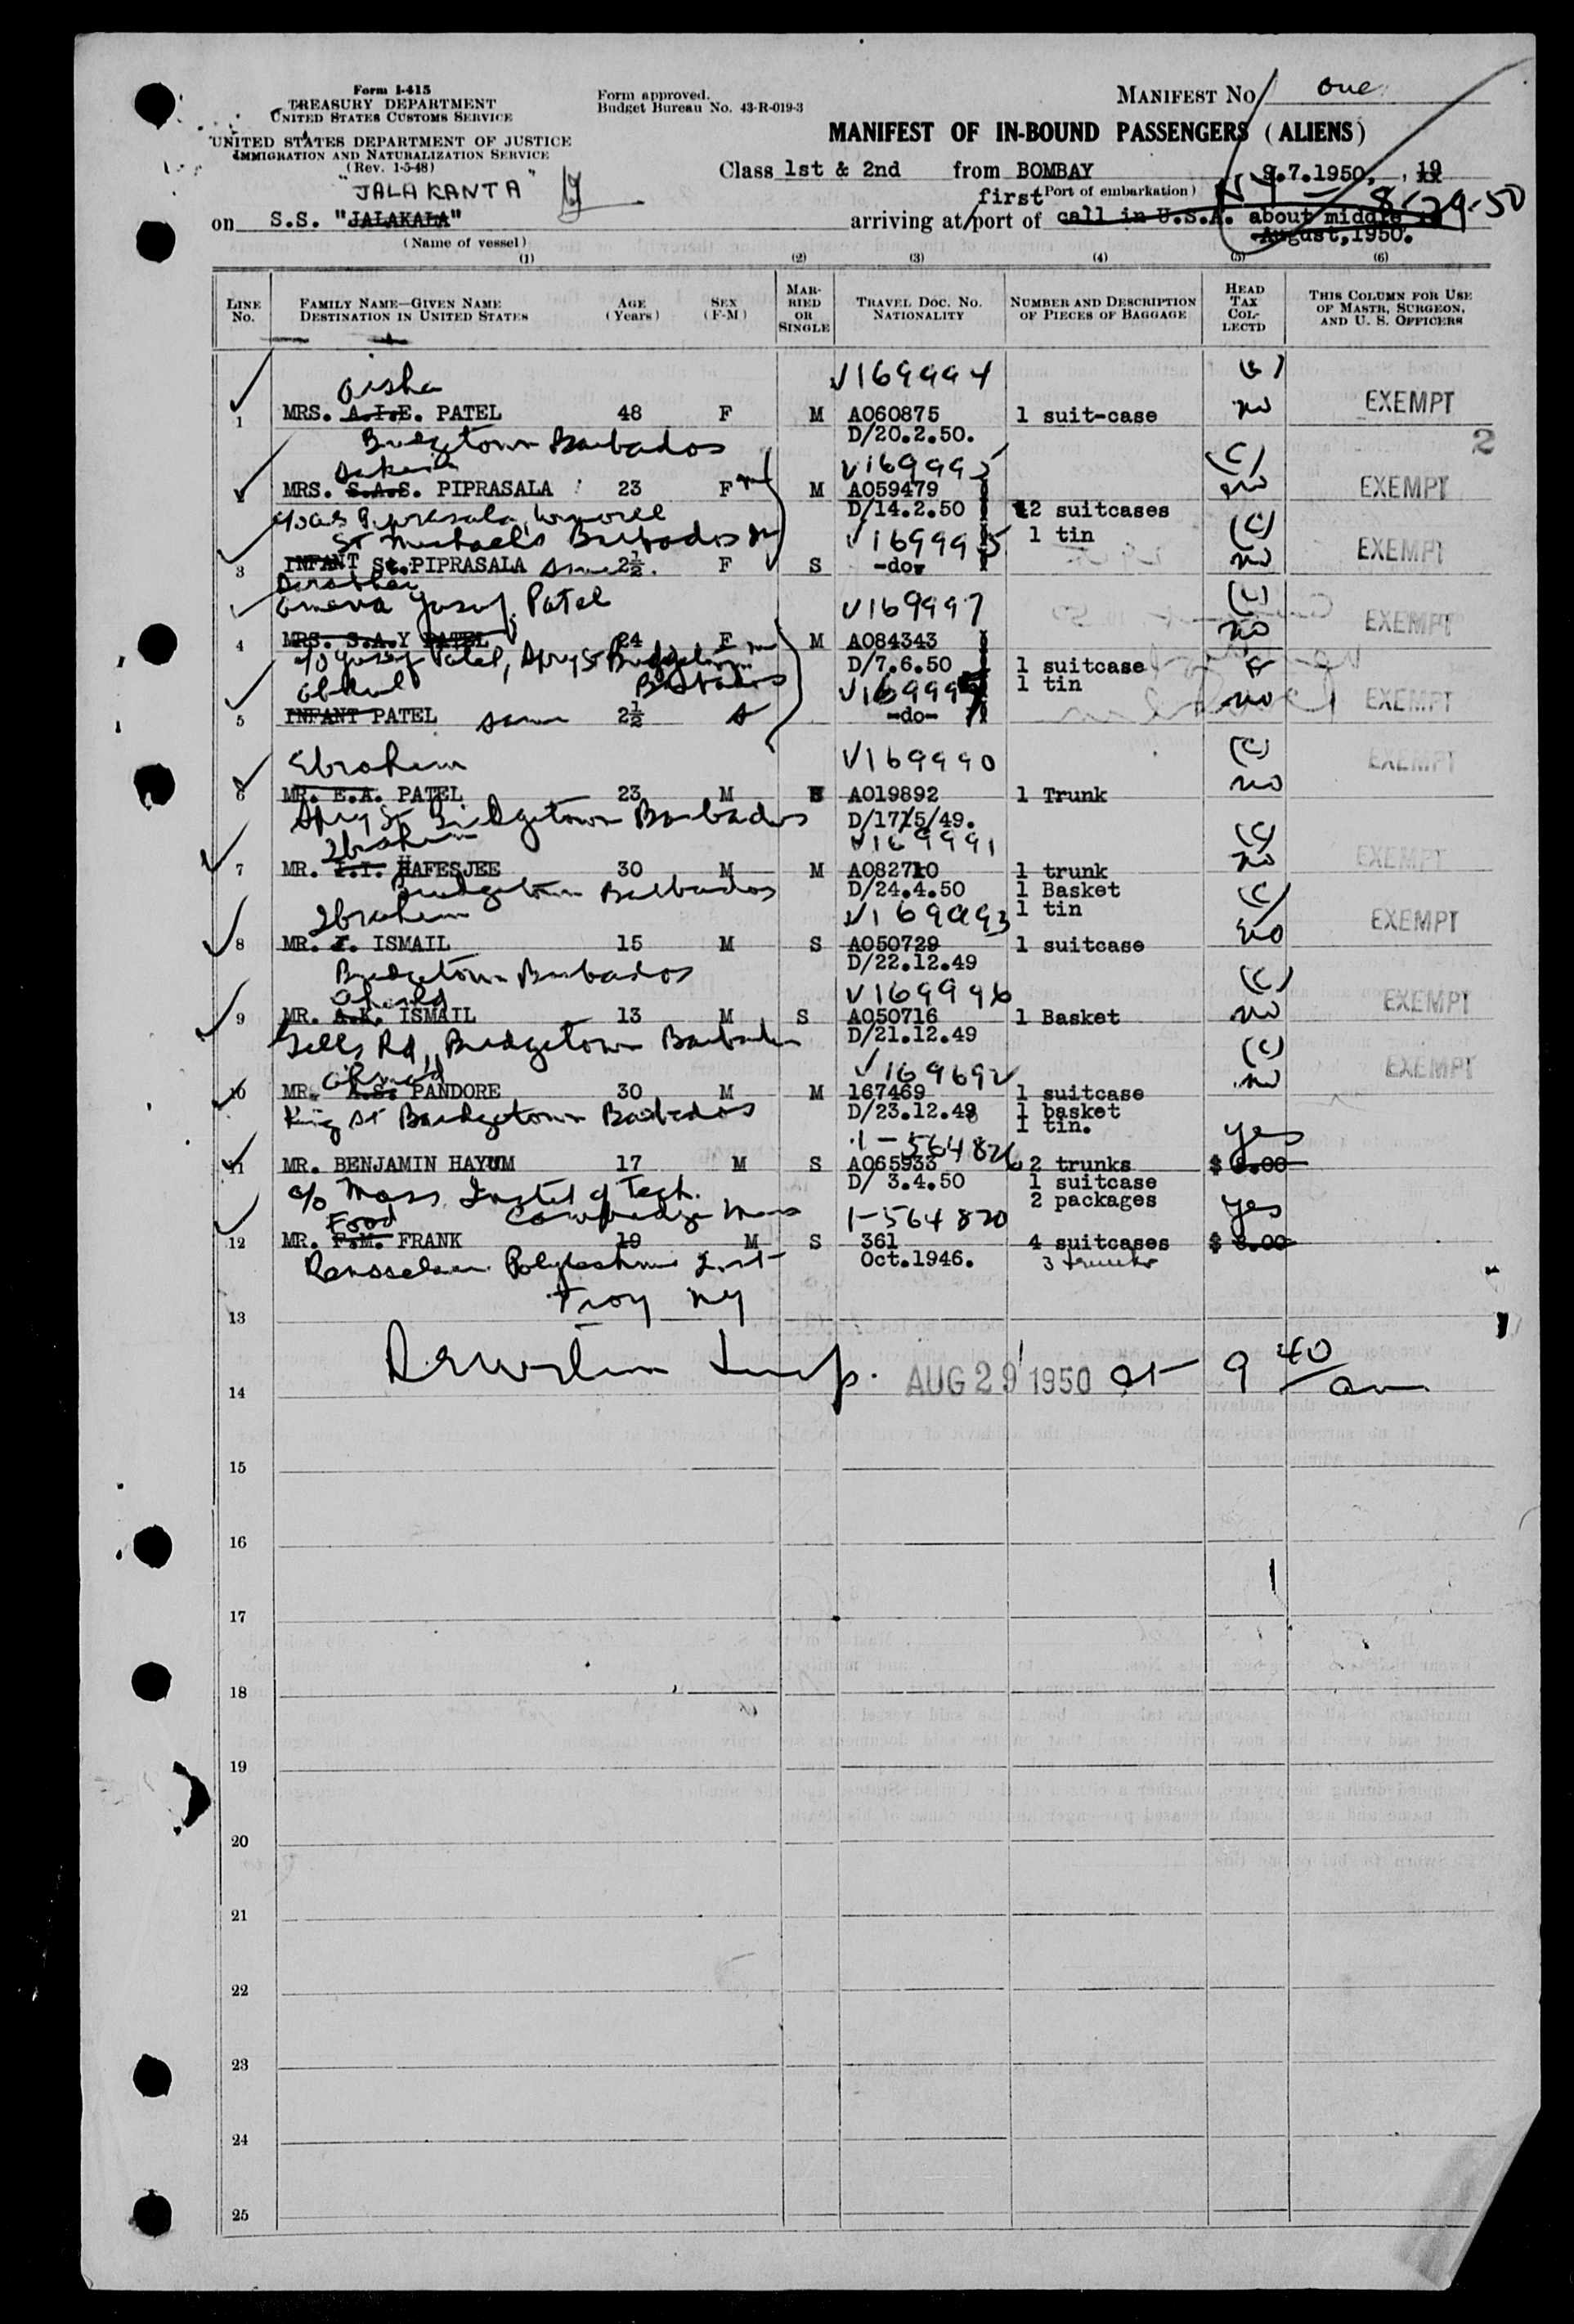 Form I-415
TREASURY DEPARTMENT
UNITED STATES CUSTOMS SERVICE
UNITED STATES DEPARTMENT OF JUSTICE
IMMIGRATION AND NATURALIZATION SERVICE
(Rev. 1-5-48)
Form approved.
Budget Bureau No. 43-R-019-3
MANIFEST No. one
MANIFEST OF IN-BOUND PASSENGERS (ALIENS)
Class 1st & 2nd from BOMBAY 9.7.1950, , 19
"JALAKANTA"
first (Port of embarkation)
on S.S. "JALAKALA" arriving at/port of call in U.S.A. about middle August, 1950. NY 8-29-50
(Name of vessel)
(1) (2) (3) (4) (5) (6)
LINE No. FAMILY NAME—GIVEN NAME DESTINATION IN UNITED STATES AGE (Years) SEX (F-M) MARRIED OR SINGLE TRAVEL DOC. No. NATIONALITY NUMBER AND DESCRIPTION OF PIECES OF BAGGAGE HEAD TAX COLLECTD THIS COLUMN FOR USE OF MASTR, SURGEON, AND U. S. OFFICERS
Aisha V169994
1 MRS. A.I.E. PATEL 48 F M A060875 1 suit-case no EXEMPT
D/20.2.50.
Bridgetown Barbados
2
Sakina V169995 (C)
2 MRS. S.A.S. PIPRASALA 23 F M A059479 no EXEMPT
D/14.2.50 2 suitcases
c/o A.S. Piprasala,
St Michaels Barbados V169995 1 tin (C)
3 INFANT St. PIPRASALA same 2½ F S -do- no EXEMPT
Patel V169997 (C)
4 MRS. S.A.Y PATEL 24 F M A084343 no EXEMPT
c/o Yusuf Patel, Spry St Bridgetown Barbados D/7.6.50 1 suitcase
Abdul 1 tin
5 INFANT PATEL same 2½ S -do- no EXEMPT
Ebrahim V169990 (C) EXEMPT
6 MR. E.A. PATEL 23 M A019892 1 Trunk no
Spry St Bridgetown Barbados D/17/5/49.
Ibrahim V169991 (C)
7 MR. I.I. HAFESJEE 30 M M A082710 1 trunk no EXEMPT
Bridgetown Barbados D/24.4.50 1 Basket
Ibrahim V169993 1 tin (C)
8 MR. I. ISMAIL 15 M S A050729 1 suitcase no EXEMPT
D/22.12.49
Bridgetown Barbados
V169996 (C)
9 MR. A.K. ISMAIL 13 M S A050716 1 Basket no EXEMPT
D/21.12.49
Rd, Bridgetown Barbados
Ahmed V169692 (C)
10 MR. A.S. PANDORE 30 M M 167469 1 suitcase no EXEMPT
King St Bridgetown Barbados D/23.12.49 1 basket
1 tin.
1-564826 yes
11 MR. BENJAMIN HAYUM 17 M S A065933 2 trunks $ 8.00
D/ 3.4.50 1 suitcase
c/o Mass. Instit of Tech. Cambridge Mass 2 packages
1-564820 yes
12 MR. F.M. FRANK 19 M S 361 4 suitcases $ 8.00
Oct.1946. 3 trunks
Rensselaer Polytechnic Inst
Troy NY
13
Insp. AUG 29 1950 at 9 40 am
14
15
16
17
18
19
20
21
22
23
24
25